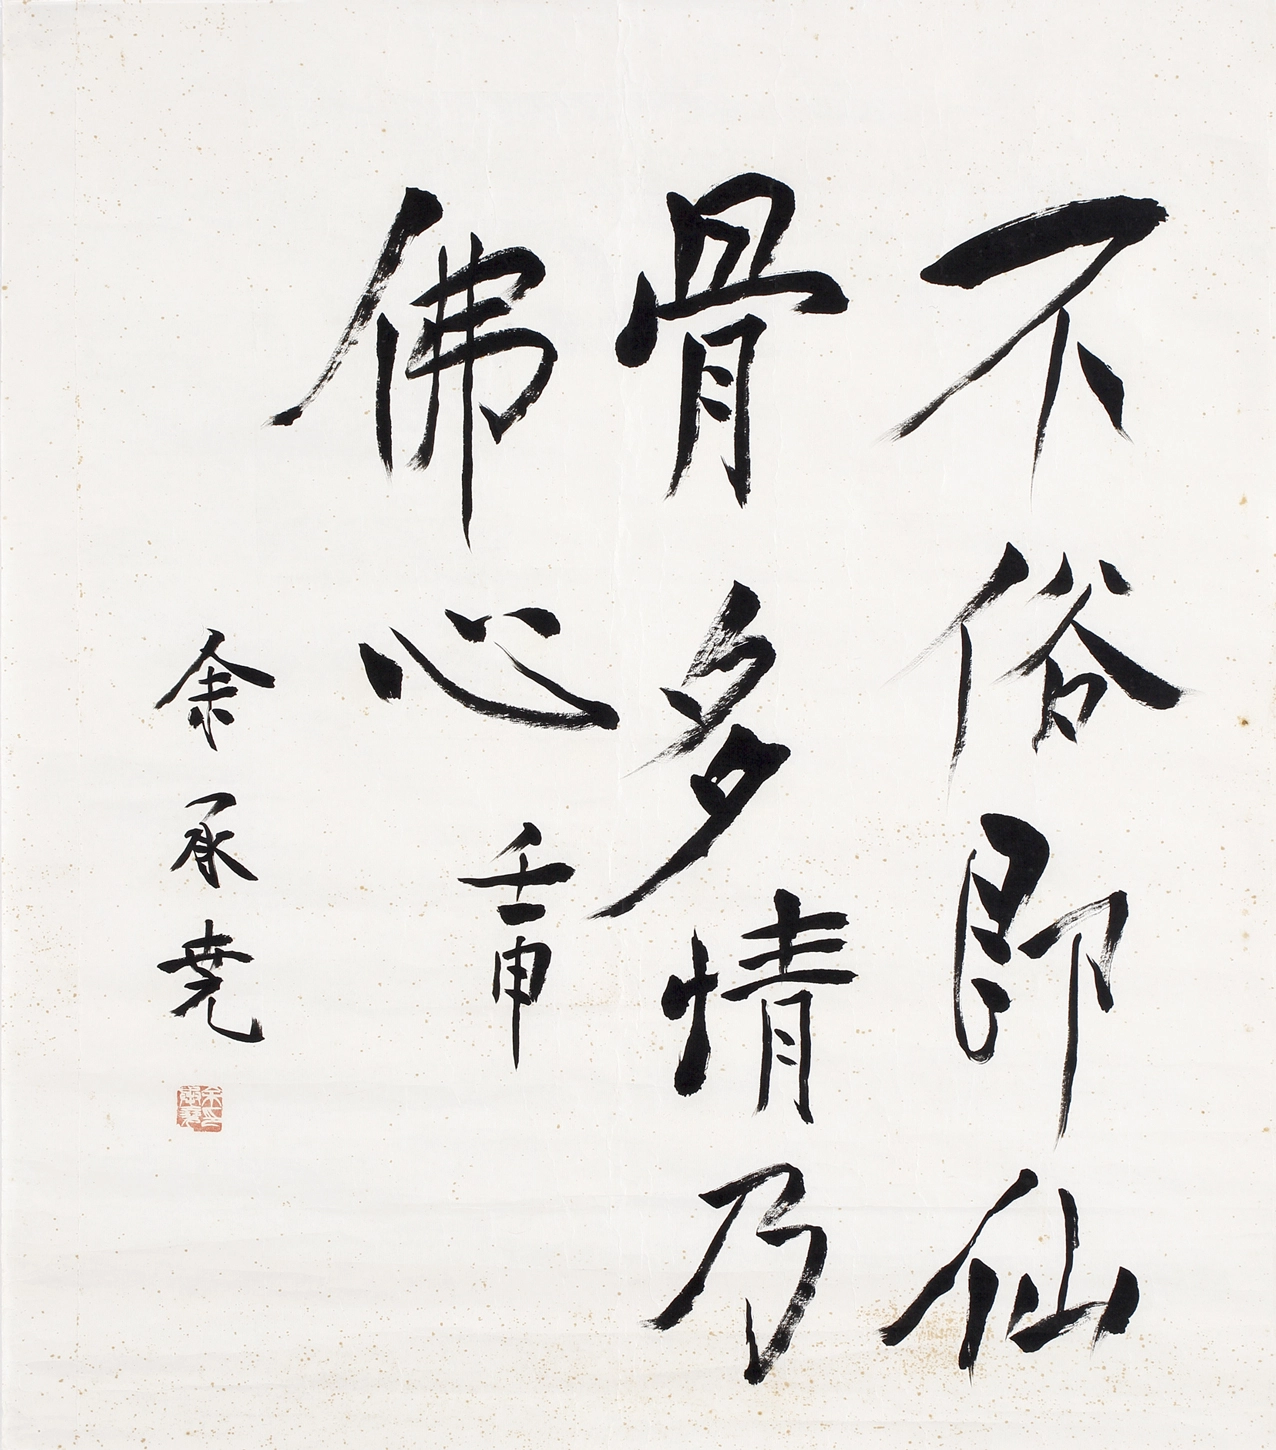 不俗即仙
骨多情乃
佛心 壬申
余承堯